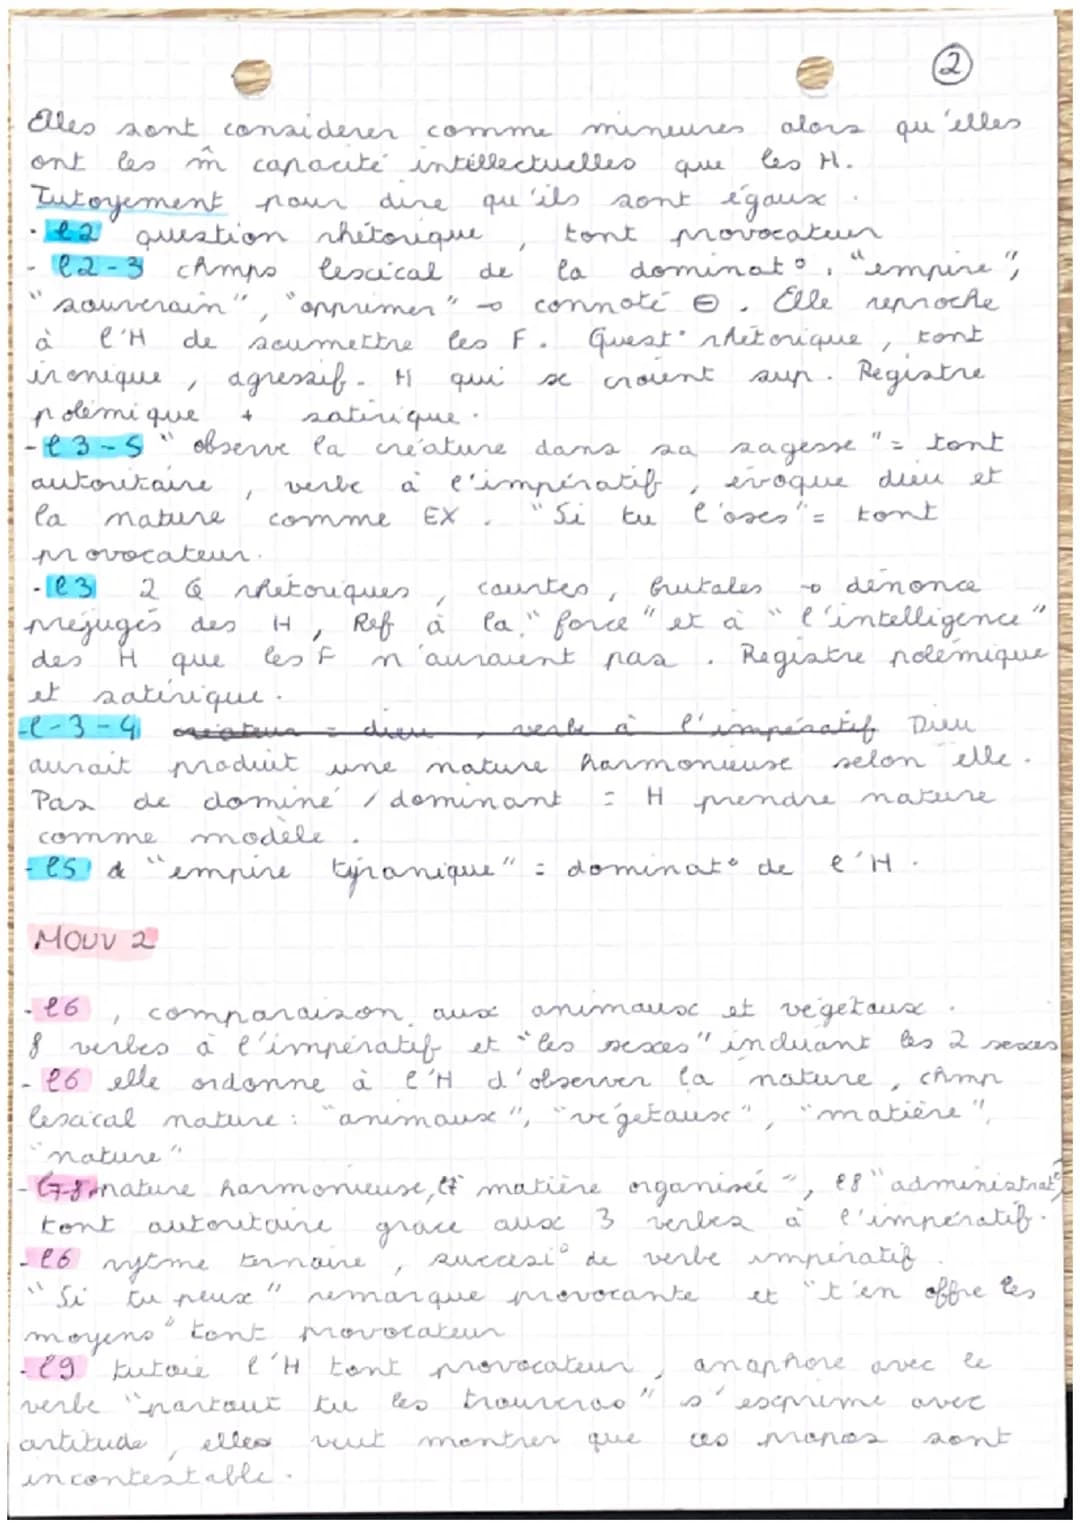 2
Elles sont considerer comme mineures alors qu'elles
ont les m̂ capacité intellectuelles que les H.
Tutoyement pour dire qu'ils sont égaux.
- l2 question rhétorique, tont provocateur
- l2-3 chmps lescical de la dominat°, "empire",
"souverain", "opprimer" → connoté ⊖. Elle reproche
à l'H de soumettre les F. Quest° rhétorique, tont
ironique, agressif. H qui se croient sup. Registre
polémique + satirique.
- l3-5 "observe la créature dans sa sagesse" = tont
autoritaire, verbe à l'impératif, évoque dieu et
la nature comme EX. "Si tu l'oses" = tont
provocateur.
- l3 2 Q rhétoriques, courtes, brutales → dénonce
préjugés des H, Ref à la "force" et à "l'intelligence"
des H que les F n'auraient pas. Registre polémique
et satirique.
- l-3-4 créateur = dieu, verbe à l'impératif Dieu
aurait produit une nature harmonieuse selon elle.
Pas de dominé / dominant = H prendre nature
comme modèle.
- l5 "empire tyranique" = dominat° de l'H.
MOUV 2
- l6, comparaison aux animaux et végétaux.
8 verbes à l'impératif et "les sexes" incluant les 2 sexes
- l6 elle ordonne à l'H d'observer la nature, chmp
lesical nature : "animaux", "végétaux", "matière",
"nature"
- l7-8 nature harmonieuse, l7 matière organisée", l8 "administrat°"
tont autoritaire grace aux 3 verbes à l'impératif.
- l6 rytme ternaire, successi° de verbe impératif.
"Si tu peux" remarque provocante et "t'en offre les
moyens" tont provocateur
- l9 tutoie l'H tont provocateur, anaphore avec le
verbe "partout tu les trouveras" s'exprime avec
artitude, elles veut montrer que ces propos sont
incontestable.